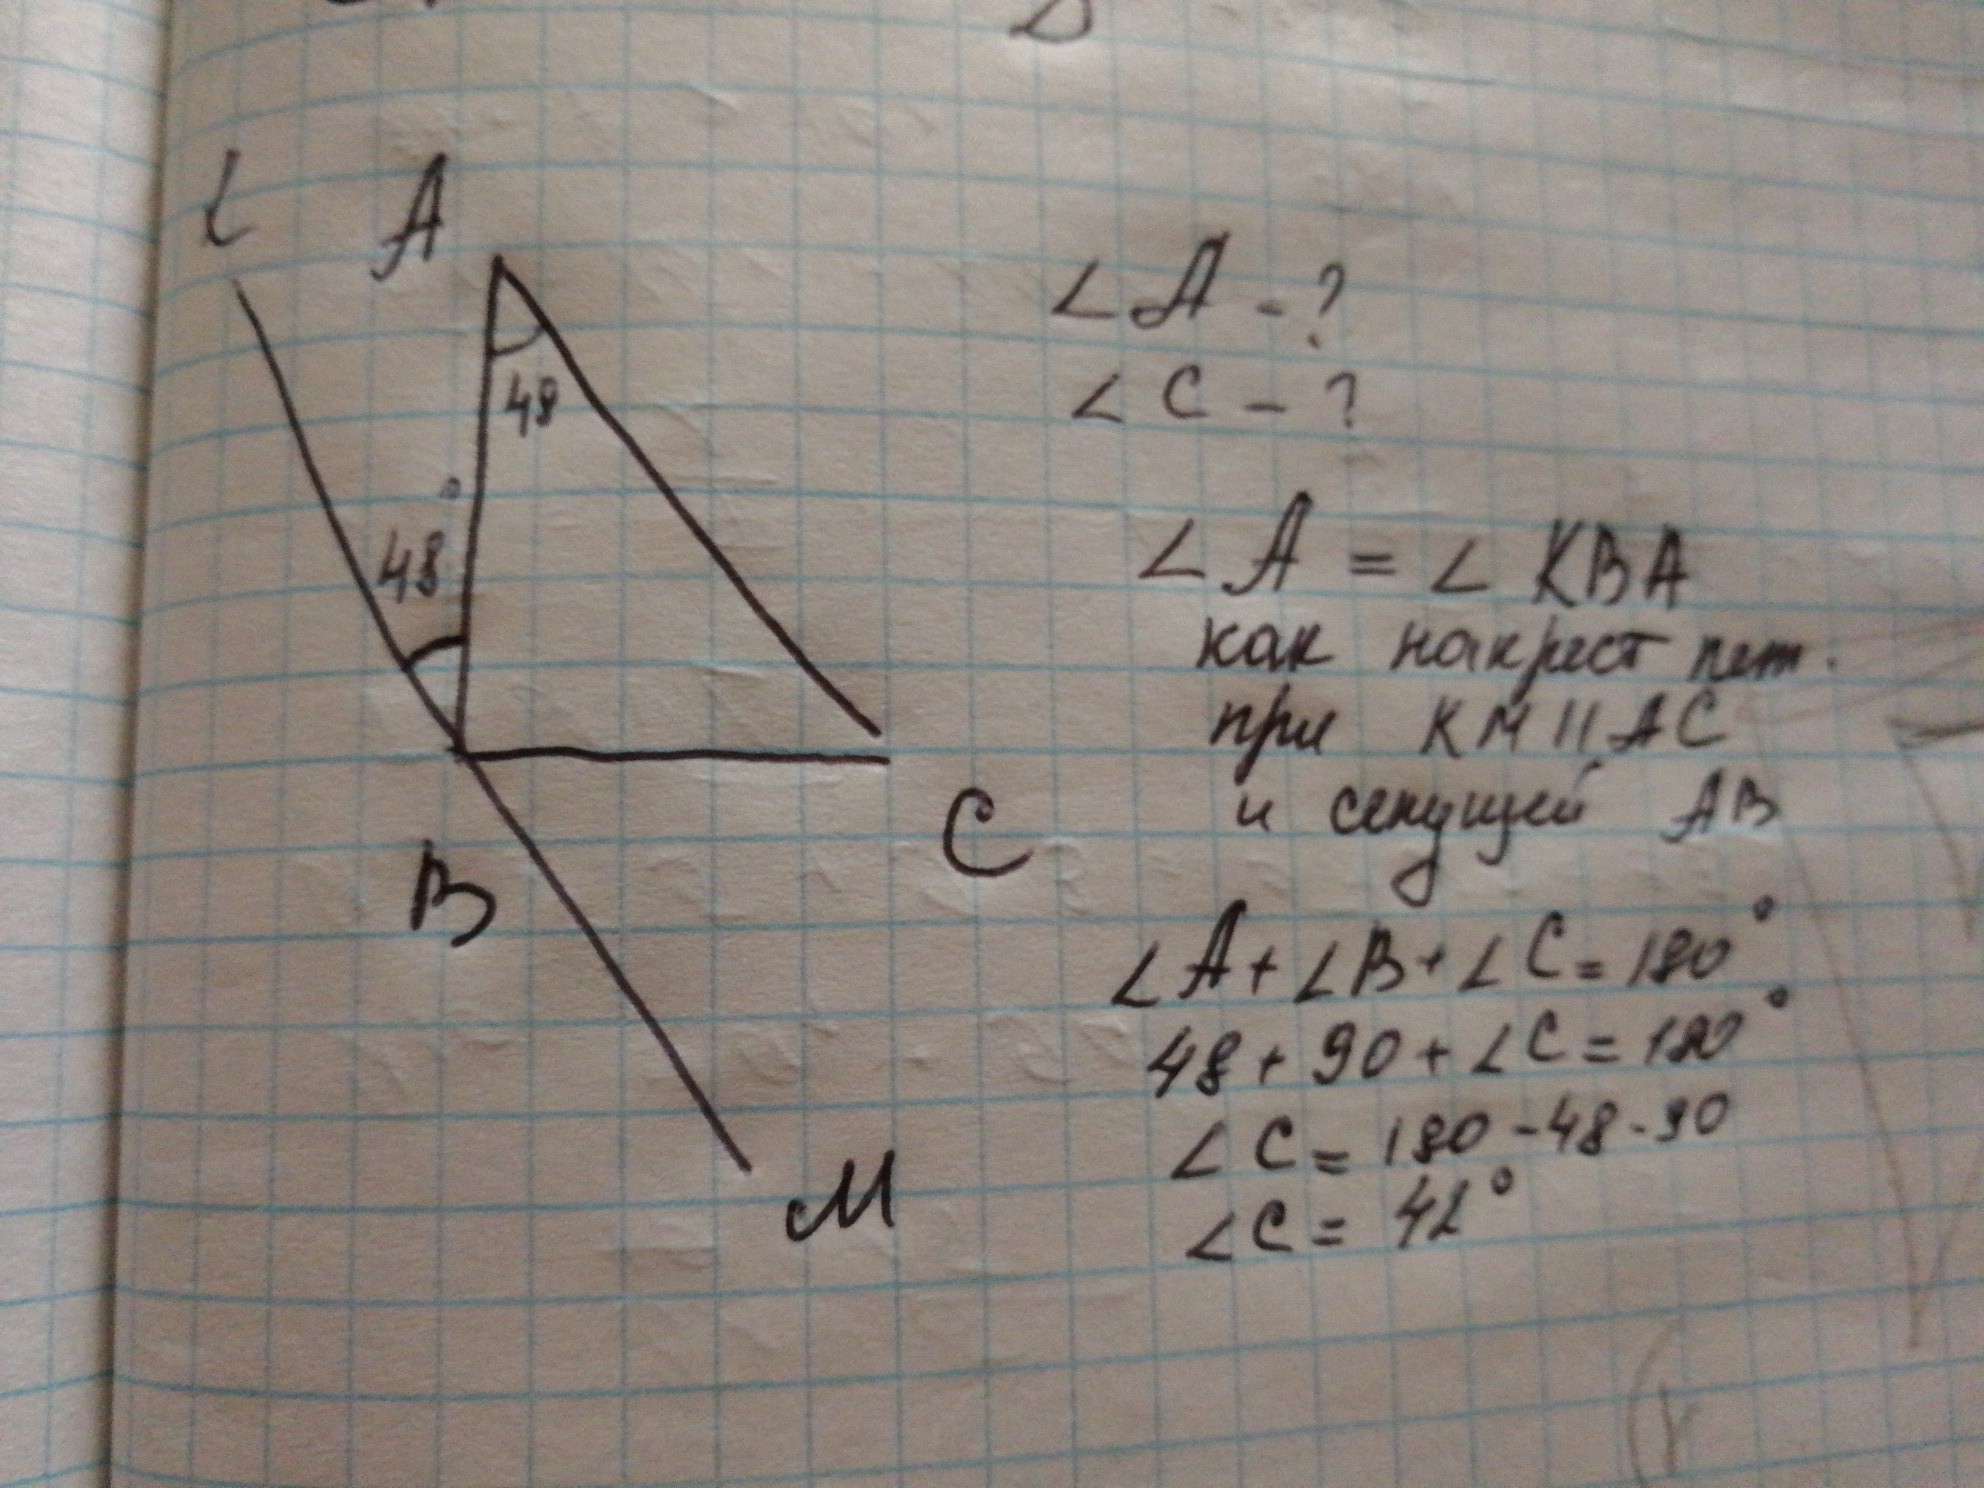 L
A
48
48°
B
C
M
∠A - ?
∠C - ?
∠A = ∠KBA
как накрест
при KM || AC
и секущей AB
∠A + ∠B + ∠C = 180°
48 + 90 + ∠C = 180°
∠C = 180 - 48 - 90
∠C = 42°